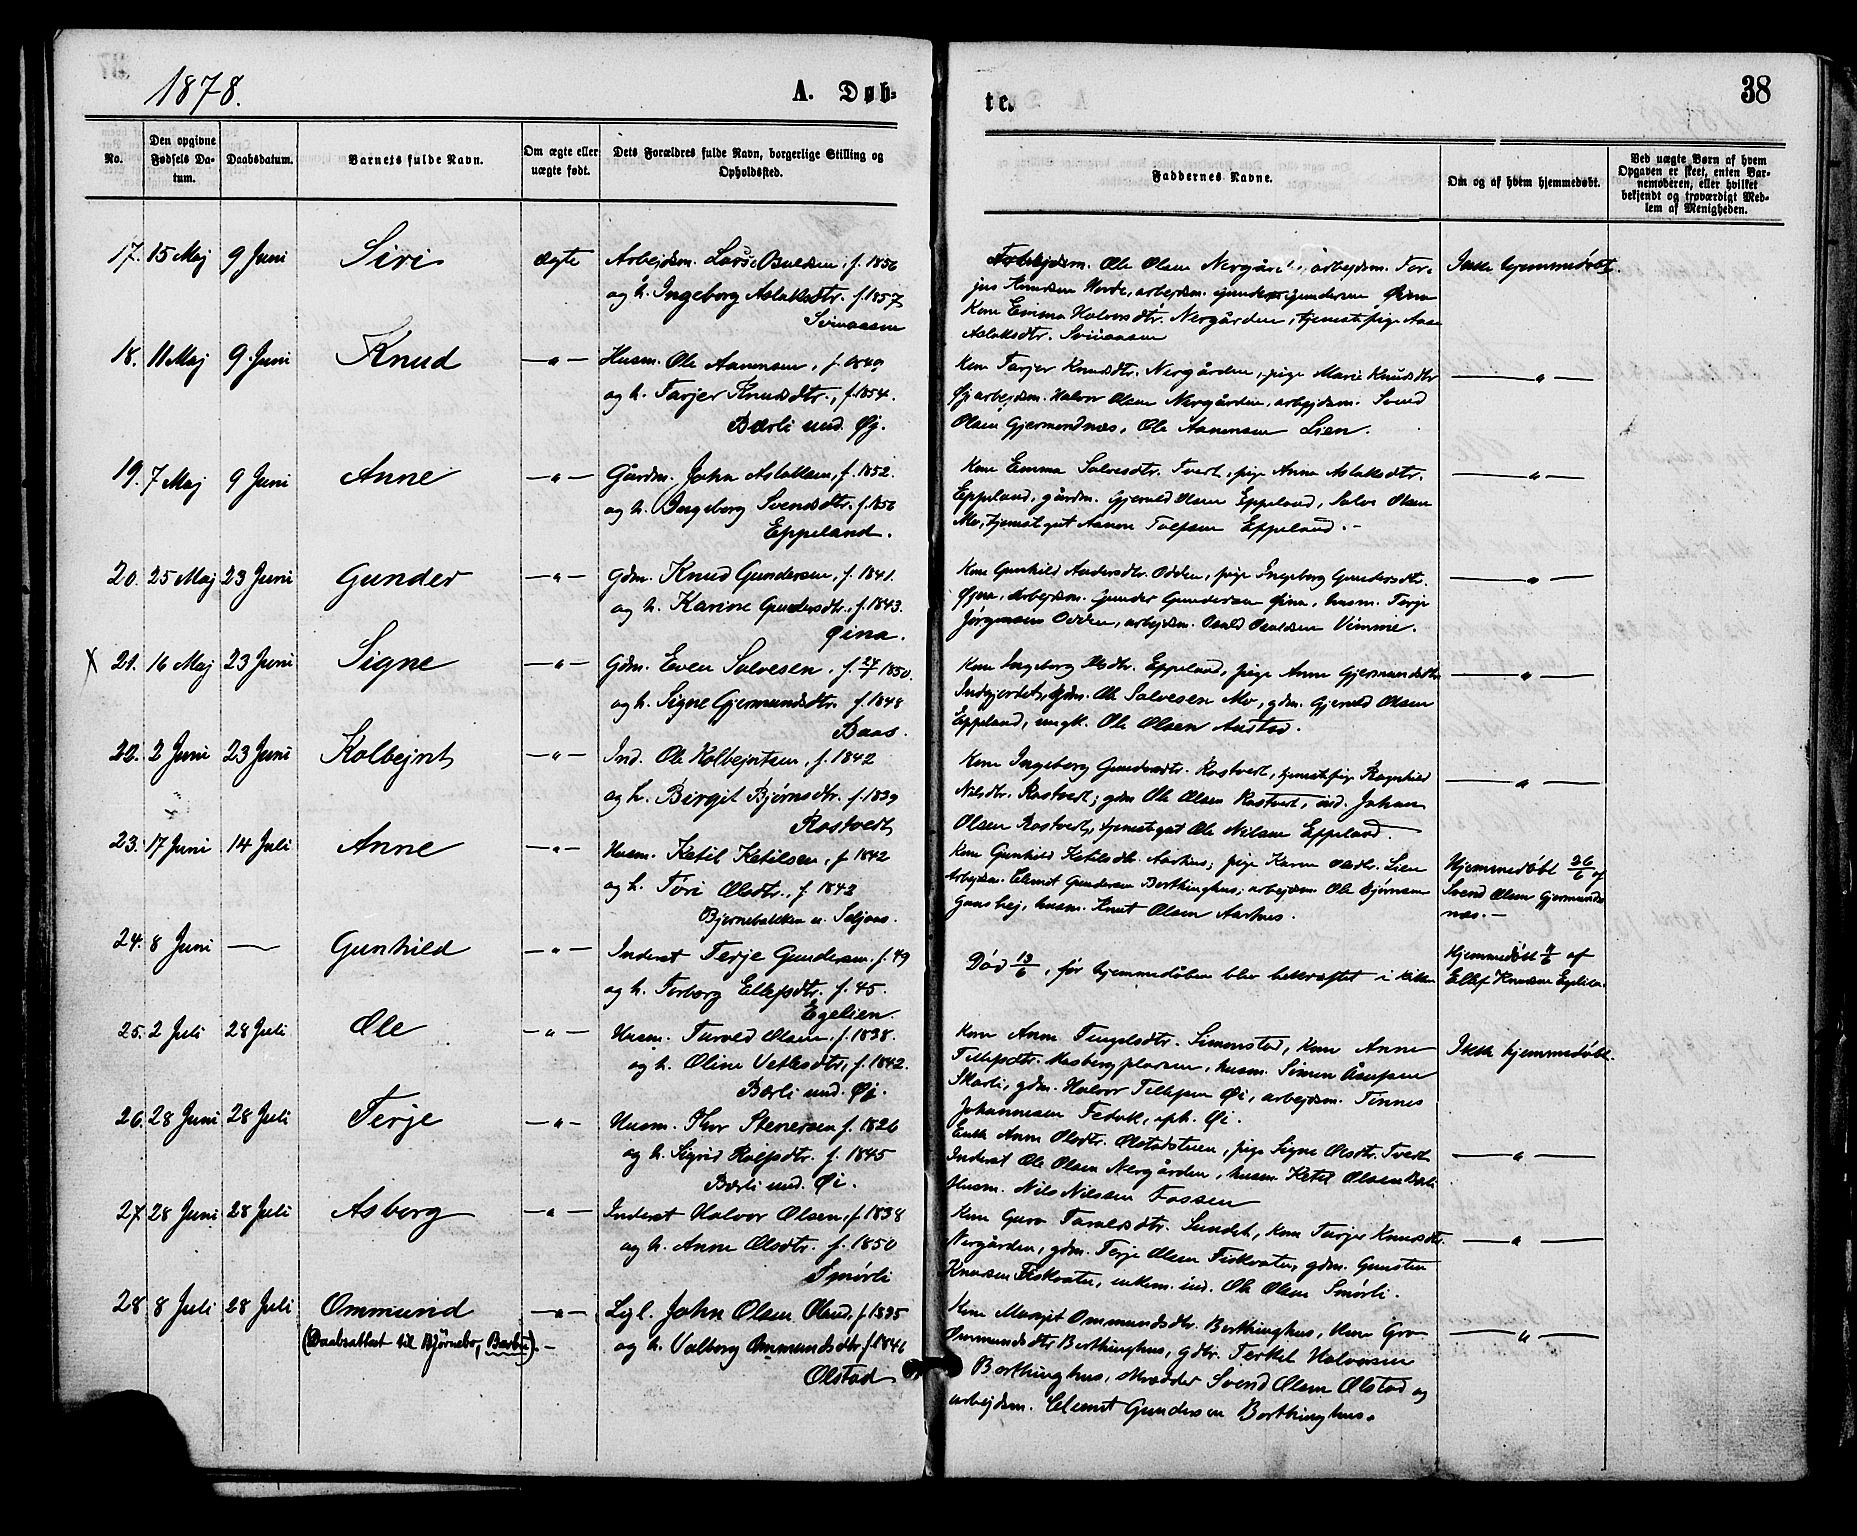 1878.
A. Døb-
te.
38
No.
Den opgivne Fødsels Datum.
Daabsdatum.
Barnets fulde Navn.
Om ægte eller uægte født.
Dets Forældres fulde Navn, borgerlige Stilling og Opholdssted.
Faddernes Navne.
Om og af hvem hjemmedøbt.
Ved uægte Børn af hvem Opgaven er skeet, enten Barnemoderen, eller hvilket bekjendt og troværdigt Medlem af Menigheden.
17. 15 Maj 9 Juni Siri ægte Arbejdsm. Lars Osuldsen, f. 1856
og h. Ingeborg Aslaksdtr. f. 1857
Arbejdsm. Ole Olsen Nergården, arbejdsm. Ter-
jus Knudsen arbejdsm. Gunder Gundersen Øina
Kone Emma Halvorsdtr. Nergården, tjenestepige Aase
Aslaksdtr.
Ikke hjemmedøbt.
18. 11 Maj 9 Juni Knud —"— Husm. Ole Aanensen, f. 1849
og h. Tarjer Knudsdtr., f. 1854.
Bærli und. Øy.
Kone Tarjer Knudsdtr. Nergården, pige Marie Knudsdtr
Øy arbejdsm. Halvor Olsen Nergården, arbejdsm. Svend
Olsen Gjermondnæs, Ole Aanensen Lien.
—"—
19. 7 Maj 9 Juni Anne —"— Gårdm. John Aslaksen, f. 1852.
og h. Ingeborg Svendsdtr. f. 1856
Eppeland.
Kone Emma Salvesdtr. Tvert, pige Anne Aslaksdtr.
Eppeland, gårdm. Gjeruld Olsen Eppeland, Salve Olsen
Mo, tjenestgut Aanon Tellefsen Eppeland. –
—"—
20. 25 Maj 23 Juni Gunder —"— Gdm. Knud Gundersen, f. 1841.
og h. Karine Gundersdtr., f. 1843.
Øina.
Kone Gunhild Andersdtr. Odden, pige Ingeborg Gundersdtr.
Øyna, Arbejdsm. Gunder Gundersen Øina, husm. Terje
Jørgensen Odden, arbejdsm. Osuld Osuldsen Vimme.
—"—
X 21. 16 Maj 23 Juni Signe —"— Gdm. Even Salvesen, f. 27/7 1850.
og h. Signe Gjermundsdtr. f. 1848
Baas.
Kone Ingeborg Olsdtr. Eppeland, pige Anne Gjermundsdtr.
Indgjerdet, gdm. Ole Salvesen Mo, gdm. Gjeruld Olsen
Eppeland, ungk. Ole Olsen Austad.
—"—
22. 2 Juni 23 Juni Kolbejnt —"— Ind. Ole Kolbejntsen, f. 1842
og h. Birgit Bjørnsdtr. f. 1839
Rostvedt
Kone Ingeborg Gundersdtr. Rostvedt, tjenestepige Ragnhild
Nilsdtr. Rostvedt; gdm Ole Olsen Rostvedt, ind. Johan
Olsen Rostvedt, tjenestgut Ole Nilsen Eppeland.
—"—
23. 17 Juni 14 Juli Anne —"— Husm. Ketil Ketilsen, f. 1842
og h. Tóri Olsdtr., f. 1842
Bjørnebakken u. Seljaas.
Kone Gunhild Ketilsdtr. Aarhus; pige Karen Olsdtr. Lien
Arbejdsm. Clemet Gundersen Borthinghus; arbejdsm Ole Bjørnsen
husm. Knut Olsen Aarhus.
Hjemmedøbt 26/6 af
Svend Olsen Gjermunds
næs. –
24. 8 Juni — Gunhild —"— Inderst Terje Gundersen, f. 49
og h. Torborg Ellefsdtr. f. 45.
Egelien.
Død 13/6, før hjemmedåben blev bekræftet i kirken
Hjemmedøbt 9/6 af
Ellef Knudsen Egelien.
25. 2 Juli 28 Juli Ole —"— Husm. Tarald Olsen, f. 1838.
og h. Oline Vetlesdtr., f. 1842.
Bærli und. Øi.
Kone Anne Simonstad, Kone Anne
Tellefsdtr. husm. Simen
Skarli, gdm. Halvor Tellefsen Øi, arbejdsm. Tønnes
Johannesen oph. Øi.
Ikke hjemmedøbt.
26. 28 Juni 28 Juli Terje —"— Husm. Thor Stenersen f. 1826
og h. Sigrid Rolfsdtr. f. 1845
Bærli und. Øi.
Enke Anne Olsdtr. Ølstadstuen, pige Signe Olsdtr. Tvert
Inderst Ole Olsen Nergården, husm Ketil Olsen Bærli
Husm. Nils Nilssen Fossen
—"—
27. 28 Juni 28 Juli Asborg —"— Inderst Halvor Olsen, f. 1838
og h. Anne Olsdtr. f. 1850
Smørli
Kone Guro Taraldsdtr. Sundet, Kone Tarjer Knudsdtr.
Nergården, gdm. Terje Olsen Fiskvatn, gdm. Gunsten
Knudsen Fiskvatn, enkem. ind. Ole Olsen Smørli.
—"—
28. 8 Juli 28 Juli Ommund —"— Lejl. John Olsen Ølstad, f. 1835
(Daabsattest til Bjørnebo, Barbu). – og h. Valborg Ommundsdtr. f. 1846
Ølstad
Kone Margit Ommundsdtr. Borthinghus, Kone Gro
Ommundsdtr Borthinghus, gdbr. Terkel Halvorsen
Borthinghus, skrædder Svend Olsen Ølstad og
arbejdsm. Clemet Gundersen Borthinghus.
—"—